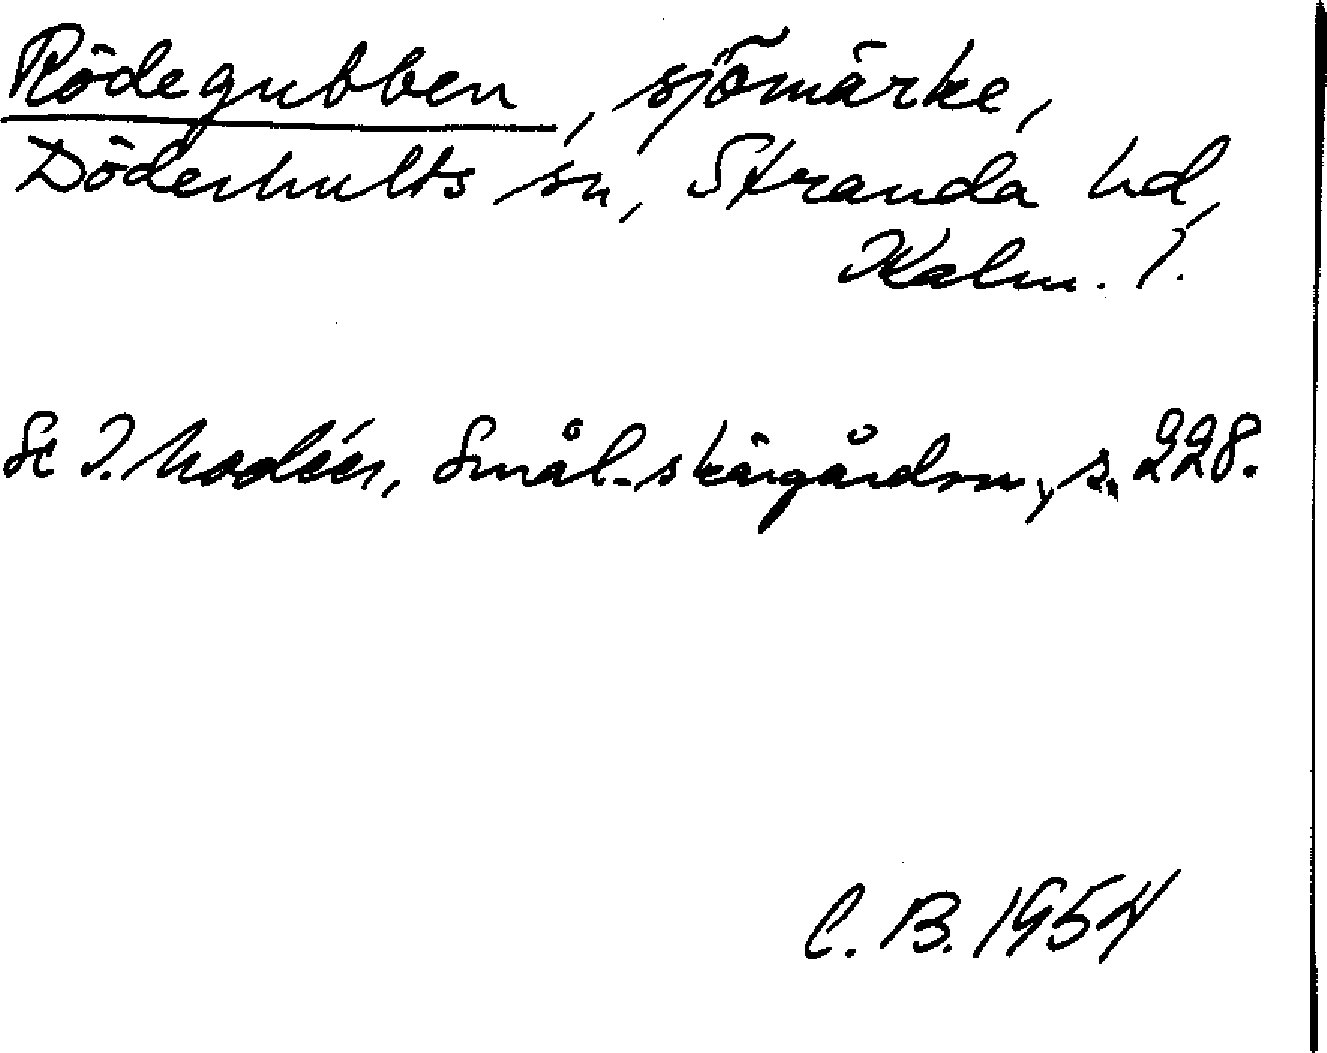 Rödegubben, sjömärke,
Döderhults sn, Stranda hd,
Kalm. l.
Se I. Modéer, Smål. skärgårdsn, s. 228.
C. B. 1954